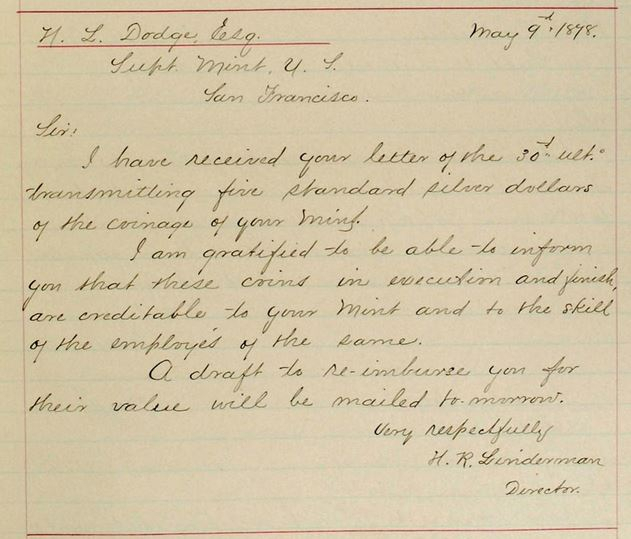 H. L. Dodge, Esq. May 9d, 1878.
Supt. Mint, U. S.
San Francisco.
Sir:
I have received your letter of the 30d ult.o
transmitting five standard silver dollars
of the coinage of your Mint.
I am gratified to be able to inform
you that these coins in execution and finish,
are creditable to your Mint and to the skill
of the employés of the same.
A draft to re-imburse you for
their value will be mailed to-morrow.
Very respectfully
H. R. Linderman
Director.